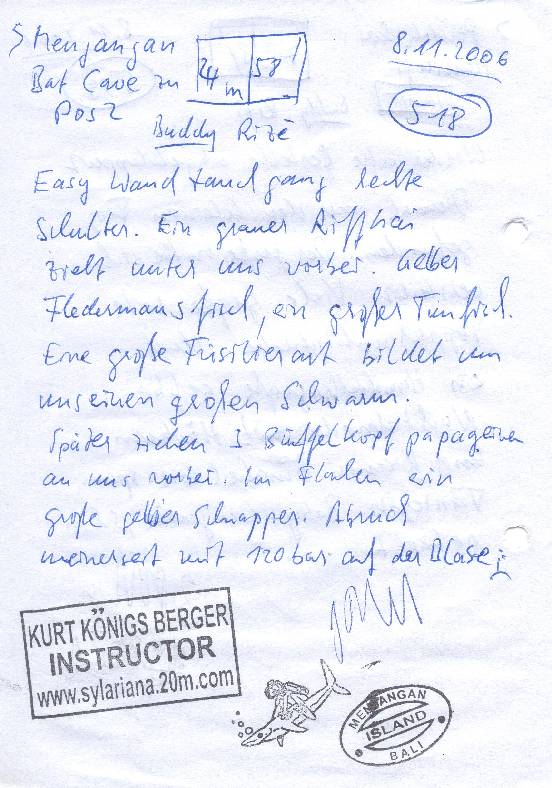 Menjangan
Bat Cave zu
Pos 2
24 m 58'
8.11.2006
518
Buddy Rizé
Easy Wandtauchgang rechte
Schulter. Ein grauer Riffhai
zieht unter uns vorbei. Gelber
Fledermausfisch, ein großer Tunfisch.
Eine große Füsilierart bildet um
uns einen großen Schwarm.
Später ziehen 3 Büffelkopfpapageien
an uns vorbei. Im Flachen ein
große gelber Schnapper. Abbruch
meinerseit mit 120 bar auf der Blase
KURT KÖNIGS BERGER
INSTRUCTOR
www.sylariana.20m.com
MENJANGAN
ISLAND
BALI